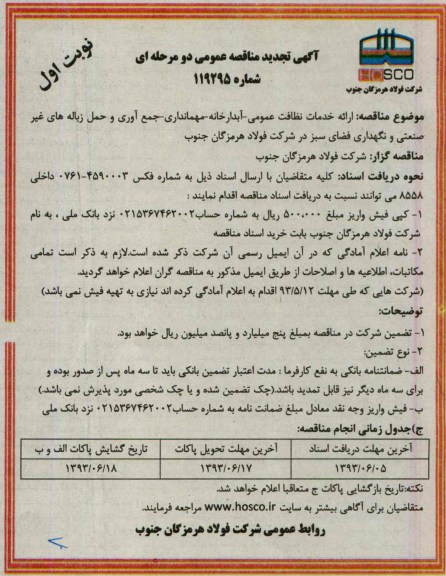 نوبت اول
آگهی تجدید مناقصه عمومی دو مرحله ای
شماره ۱۱۹۲۹۵
HOSCO
شرکت فولاد هرمزگان جنوب
موضوع مناقصه: ارائه خدمات نظافت عمومی-آبدارخانه-مهمانداری-جمع آوری و حمل زباله های غیر
صنعتی و نگهداری فضای سبز در شرکت فولاد هرمزگان جنوب
مناقصه گزار: شرکت فولاد هرمزگان جنوب
نحوه دریافت اسناد: کلیه متقاضیان با ارسال اسناد ذیل به شماره فکس ۴۵۹۰۰۰۳-۰۷۶۱ داخلی
۸۵۵۸ می توانند نسبت به دریافت اسناد مناقصه اقدام نمایند :
۱- کپی فیش واریز مبلغ ۵۰۰،۰۰۰ ریال به شماره حساب۰۲۱۵۳۶۷۴۶۲۰۰۲ نزد بانک ملی ، به نام
شرکت فولاد هرمزگان جنوب بابت خرید اسناد مناقصه
۲- نامه اعلام آمادگی که در آن ایمیل رسمی آن شرکت ذکر شده است.لازم به ذکر است تمامی
مکاتبات، اطلاعیه ها و اصلاحات از طریق ایمیل مذکور به مناقصه گران اعلام خواهد گردید.
(شرکت هایی که طی مهلت ۹۳/۵/۱۲ اقدام به اعلام آمادگی کرده اند نیازی به تهیه فیش نمی باشد)
توضیحات:
۱- تضمین شرکت در مناقصه بمبلغ پنج میلیارد و پانصد میلیون ریال خواهد بود.
۲- نوع تضمین:
الف- ضمانتنامه بانکی به نفع کارفرما : مدت اعتبار تضمین بانکی باید تا سه ماه پس از صدور بوده و
برای سه ماه دیگر نیز قابل تمدید باشد.(چک تضمین شده و یا چک شخصی مورد پذیرش نمی باشد.)
ب- فیش واریز وجه نقد معادل مبلغ ضمانت نامه به شماره حساب۰۲۱۵۳۶۷۴۶۲۰۰۲ نزد بانک ملی
ج)جدول زمانی انجام مناقصه:
آخرین مهلت دریافت اسناد آخرین مهلت تحویل پاکات تاریخ گشایش پاکات الف و ب
۱۳۹۳/۰۶/۰۵ ۱۳۹۳/۰۶/۱۷ ۱۳۹۳/۰۶/۱۸
نکته:تاریخ بازگشایی پاکات ج متعاقبا اعلام خواهد شد.
متقاضیان برای آگاهی بیشتر به سایت www.hosco.ir مراجعه فرمایند.
روابط عمومی شرکت فولاد هرمزگان جنوب